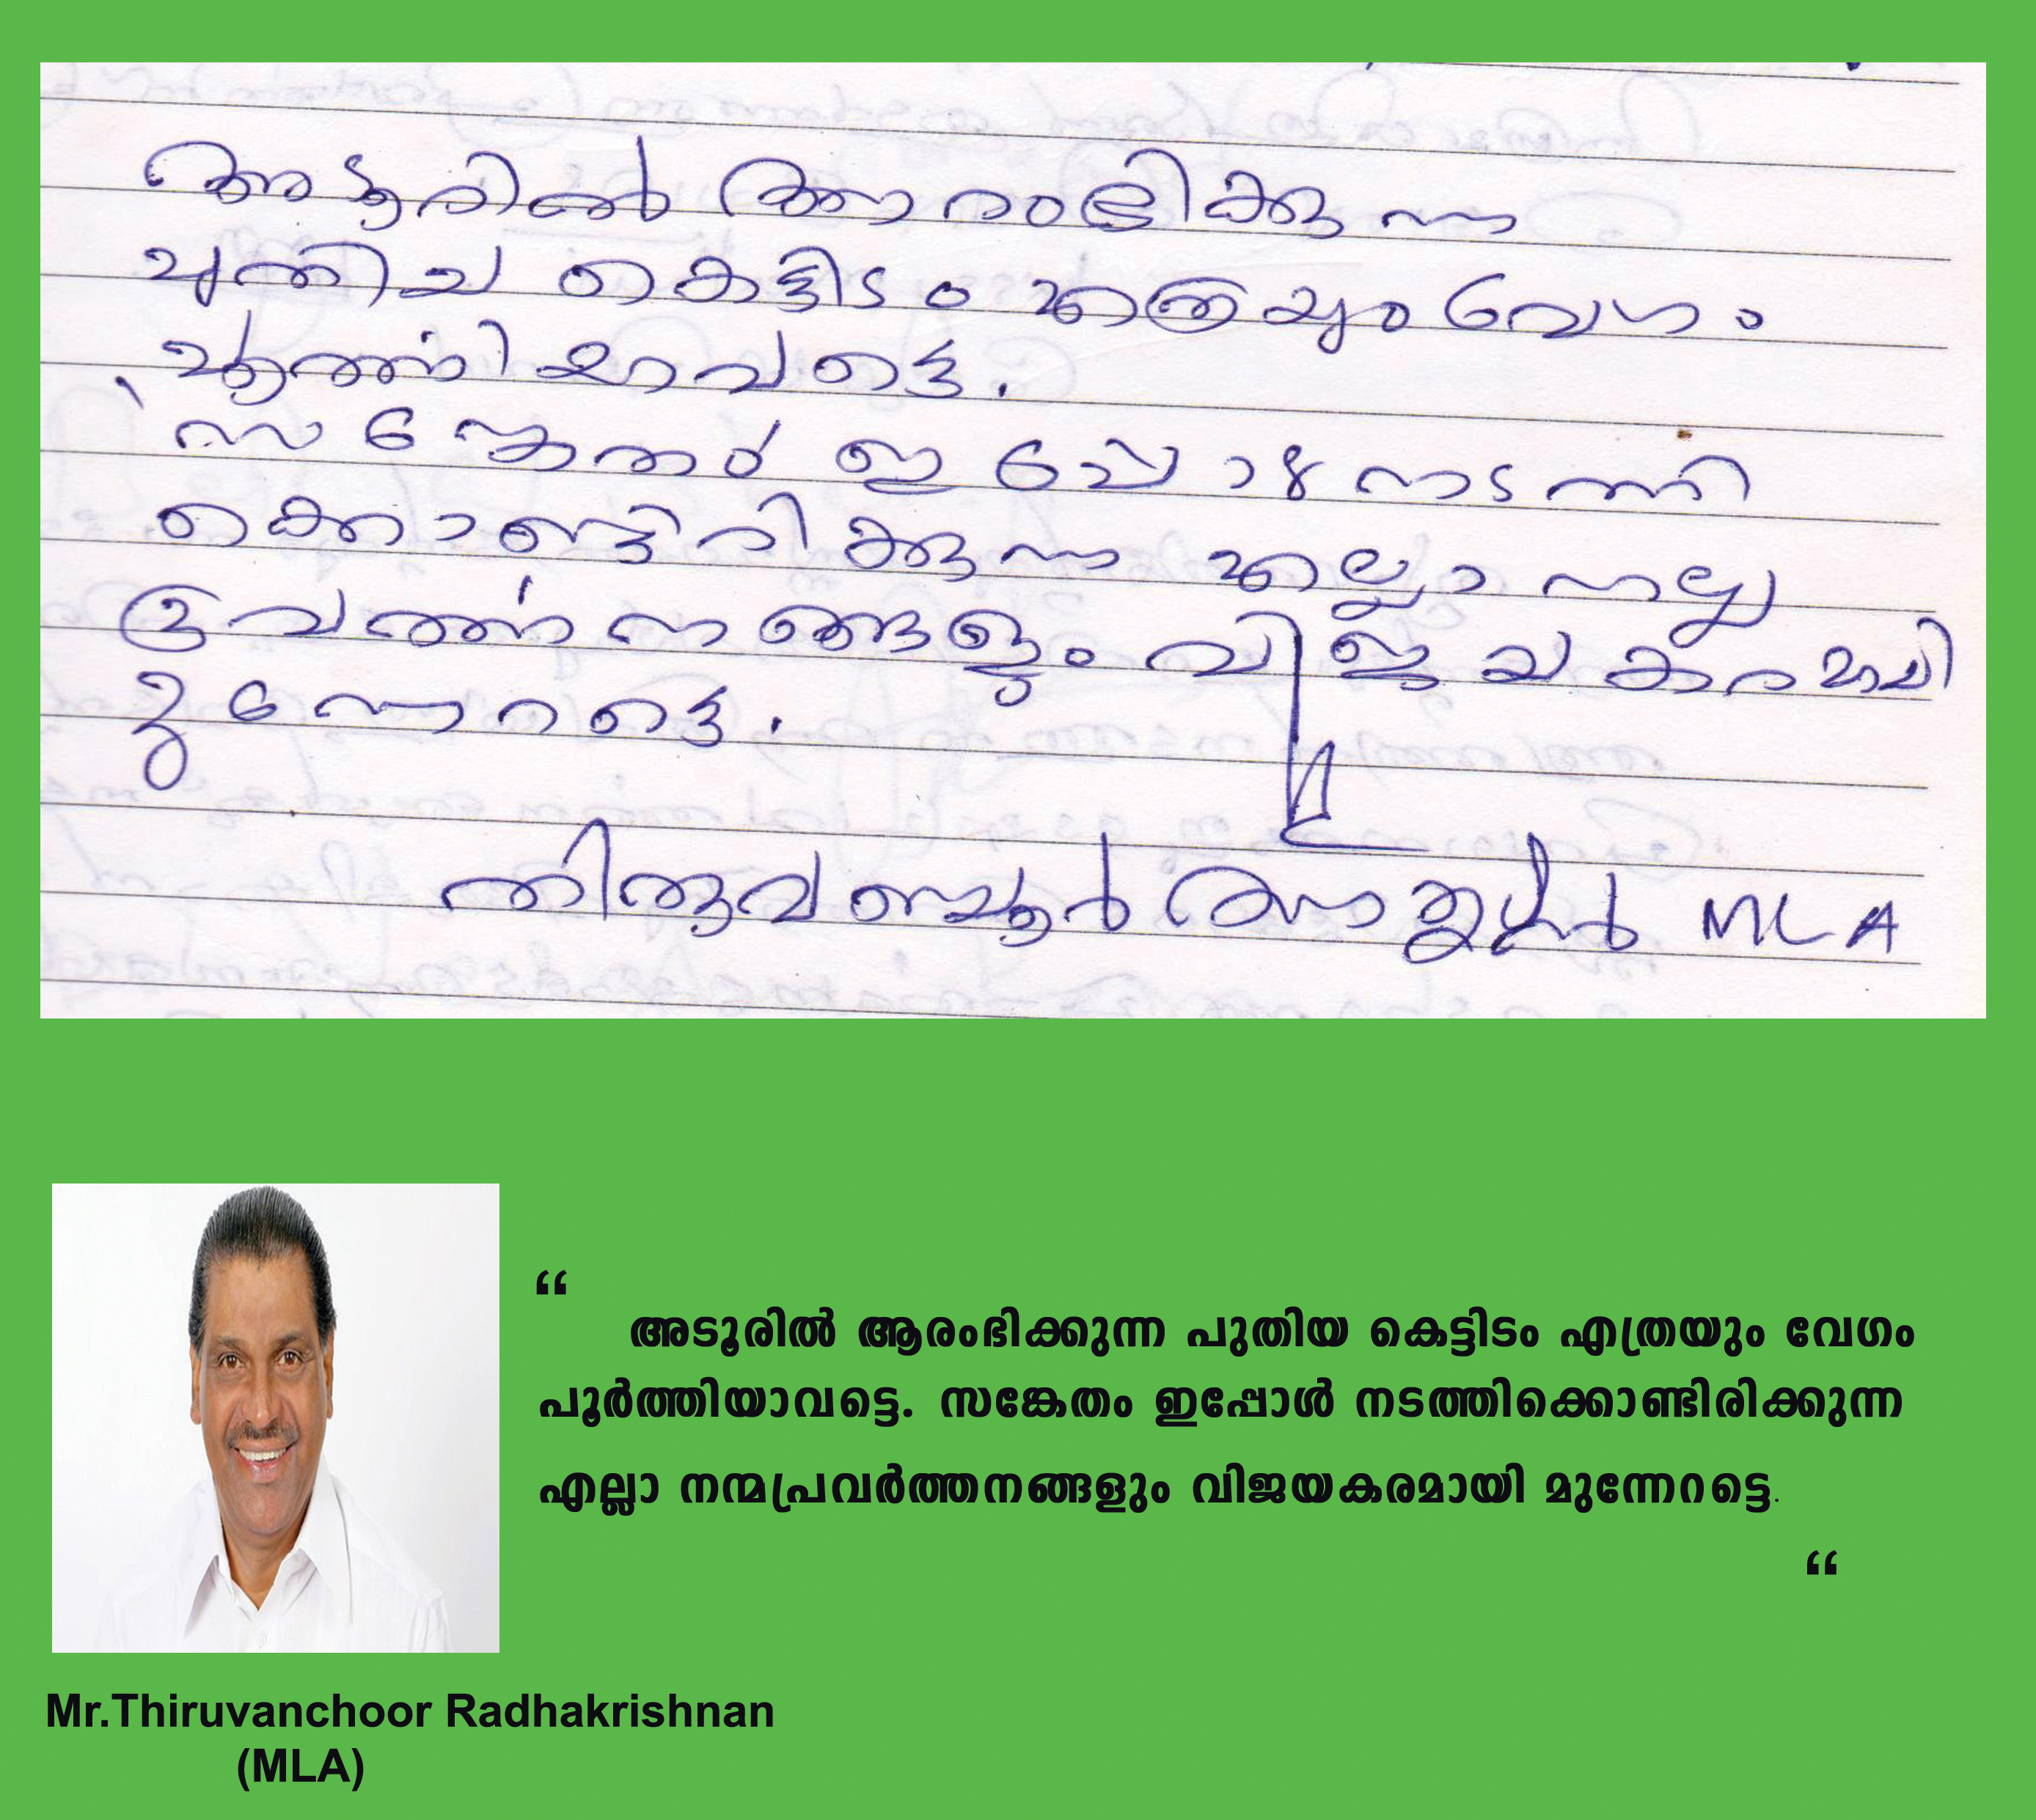 അടൂരിൽ ആരംഭിക്കുന്ന
പുതിയ കെട്ടിടം എത്രയും വേഗം
പൂർത്തിയാവട്ടെ.
സങ്കേതം ഇപ്പോൾ നടത്തി
ക്കൊണ്ടിരിക്കുന്ന എല്ലാ നല്ല
പ്രവർത്തനങ്ങളും വിജയകരമായി
മുന്നേറട്ടെ.
തിരുവഞ്ചൂർ MLA
“
അടൂരിൽ ആരംഭിക്കുന്ന പുതിയ കെട്ടിടം എത്രയും വേഗം
പൂർത്തിയാവട്ടെ. സങ്കേതം ഇപ്പോൾ നടത്തിക്കൊണ്ടിരിക്കുന്ന
എല്ലാ നന്മപ്രവർത്തനങ്ങളും വിജയകരമായി മുന്നേറട്ടെ.
“
Mr.Thiruvanchoor Radhakrishnan
(MLA)